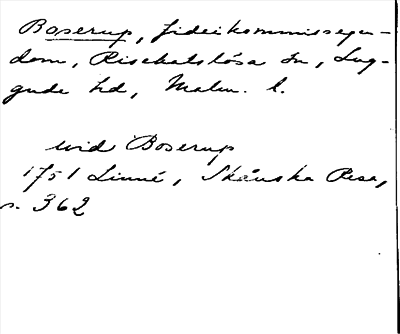 Boserup, fideikommissegen-
dom, Risekatslösa sn, Lug-
gude hd, Malm. l.
wid Boserup
1751 Linné, Skånska Resa,
s. 362